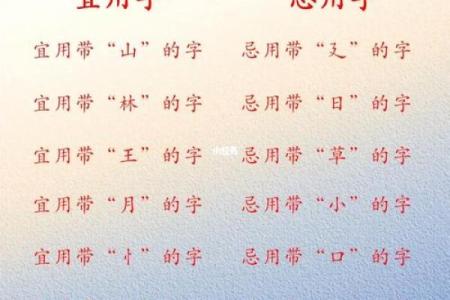 宜用字 忌用字
宜用带“山”的字 忌用带“廴”的字
宜用带“林”的字 忌用带“日”的字
宜用带“王”的字 忌用带“草”的字
宜用带“月”的字 忌用带“小”的字
宜用带“忄”的字 忌用带“口”的字